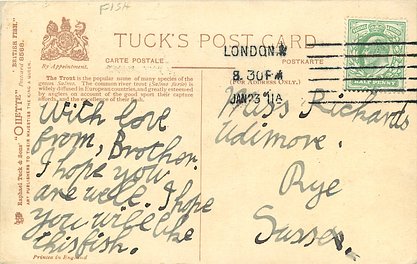 FISH
TUCK'S POST CARD
By Appointment.
CARTE POSTALE
POSTKARTE
(For Address Only.)
LONDON.W
8.30PM
JAN 23 11A
The Trout is the popular name of many species of the
genus Salmo. The common river trout (Salmo fario) is
widely diffused in European countries, and greatly esteemed
by anglers on account of the good sport their capture
affords, and the excellence of their flesh.
Raphael Tuck & Sons' "OILETTE"
"BRITISH FISH."
Postcard 8568.
ART PUBLISHERS TO THEIR MAJESTIES THE KING & QUEEN.
With love
from, Brother.
I hope you
are well. I hope
you will like
this fish.
Miss Richards
Udimore.
Rye
Sussex.
Printed in England